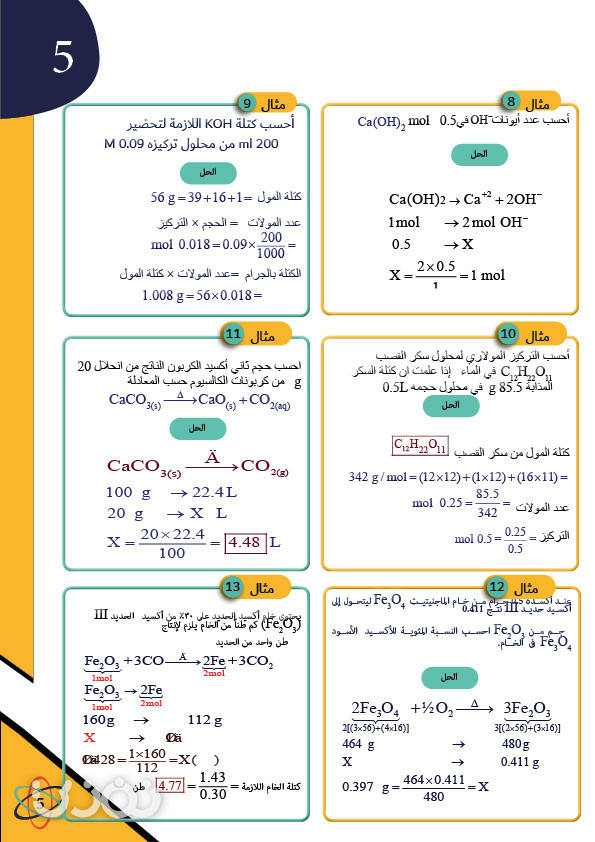 5
مثال 8
أحسب عدد أيونات OH⁻ في 0.5 mol Ca(OH)₂
الحل
Ca(OH)₂ → Ca⁺² + 2OH⁻
1mol → 2mol OH⁻
0.5 → X
X = (2 × 0.5)/1 = 1 mol
مثال 9
أحسب كتلة KOH اللازمة لتحضير
200 ml من محلول تركيزه 0.09 M
الحل
كتلة المول = 1+16+39 = 56 g
عدد المولات = الحجم × التركيز
= 200/1000 × 0.09 = 0.018 mol
الكتلة بالجرام = عدد المولات × كتلة المول
= 0.018 × 56 = 1.008 g
مثال 10
أحسب التركيز المولاري لمحلول سكر القصب
C₁₂H₂₂O₁₁ في الماء إذا علمت ان كتلة السكر
المذابة 85.5 g في محلول حجمه 0.5L
الحل
كتلة المول من سكر القصب C₁₂H₂₂O₁₁
342 g / mol = (12×12) + (1×12) + (16×11) =
عدد المولات = 85.5/342 = 0.25 mol
التركيز = 0.25/0.5 = 0.5 mol
مثال 11
احسب حجم ثاني أكسيد الكربون الناتج من انحلال 20
g من كربونات الكالسيوم حسب المعادلة
CaCO₃(s) —Δ→ CaO(s) + CO₂(aq)
الحل
CaCO₃(s) —Ä→ CO₂(g)
100 g → 22.4 L
20 g → X L
X = (20 × 22.4)/100 = 4.48 L
مثال 12
ليتحول إلى Fe₃O₄ من خام الماجنيتيت
أكسيد حديد III نتج 0.411
من Fe₂O₃ احسب النسبة المئوية للأكسيد الأسود
Fe₃O₄ في الخام.
الحل
2Fe₃O₄ + ½O₂ —Δ→ 3Fe₂O₃
2[(3×56)+(4×16)] 3[(2×56)+(3×16)]
464 g → 480 g
X → 0.411 g
0.397 g = (464×0.411)/480 = X
مثال 13
يحتوي خام أكسيد الحديد على ٣٠٪ من أكسيد الحديد III
(Fe₂O₃) كم طناً من الخام يلزم لإنتاج
طن واحد من الحديد
Fe₂O₃ + 3CO —Ä→ 2Fe + 3CO₂
1mol 2mol
Fe₂O₃ → 2Fe
1mol 2mol
160 g → 112 g
X →
428 = (1×160)/112 = X( )
كتلة الخام اللازمة = 1.43/0.30 = 4.77 طن
5